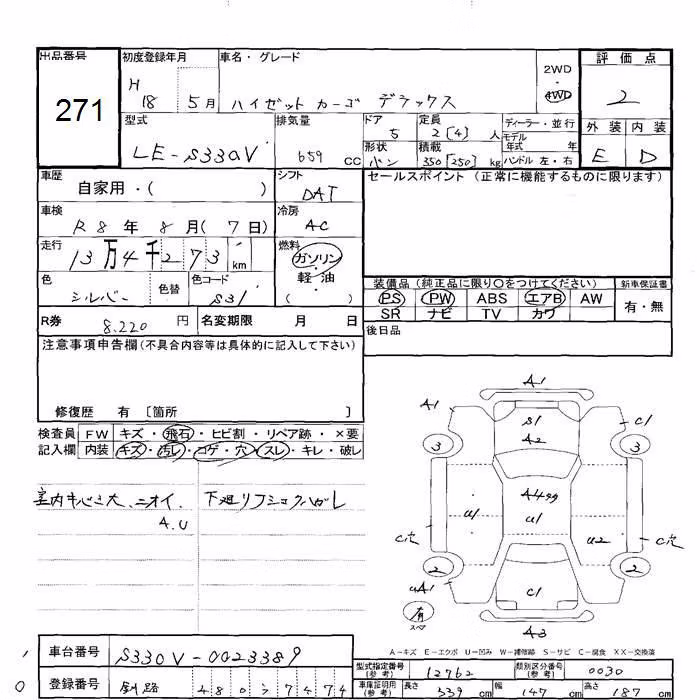 出品番号
271
初度登録年月
H
18 5月
車名・グレード
ハイゼットカーゴ デラックス
2WD
・
4WD
評価点
2
外装 内装
E D
型式
LE-S330V
排気量
659 cc
ドア
5
定員
2[4]人
形状
積載
350[250]kg
ディーラー・並行
モデル
年式 年
ハンドル 左・右
車歴
自家用・( )
シフト
DAT
車検
R8年8月(7日)
冷房
AC
走行
13万4千273km
燃料
ガソリン
・
軽・油
( )
色
シルバー
色替
色コード
S31
R券 8,220円
名変期限 月 日
セールスポイント(正常に機能するものに限ります)
装備品(純正品に限り〇をつけてください)
PS PW ABS エアB AW
SR ナビ TV カワ
新車保証書
有・無
後日品
注意事項申告欄(不具合内容等は具体的に記入して下さい)
修復歴 有 〔箇所 〕
検査員
記入欄
FW キズ・飛石・ヒビ割・リペア跡・×要
内装 キズ・汚レ・コゲ・穴・スレ・キレ・破レ
ニオイ.
A.U
A1
A1
S1
A2
C1
3
3
U1
A4
U1
U2
C穴
C穴
2
2
uA1
C1
有
スペア
A3
A-キズ E-エクボ U-凹み W-補修跡 S-サビ C-腐食 XX-交換済
車台番号 S330V-0023389
登録番号 釧路 480 7474
型式指定番号
(参考)
12762
類別区分番号
(参考)
0030
車庫証明用
(参考)
長さ 339cm 幅 147cm 高さ 187cm